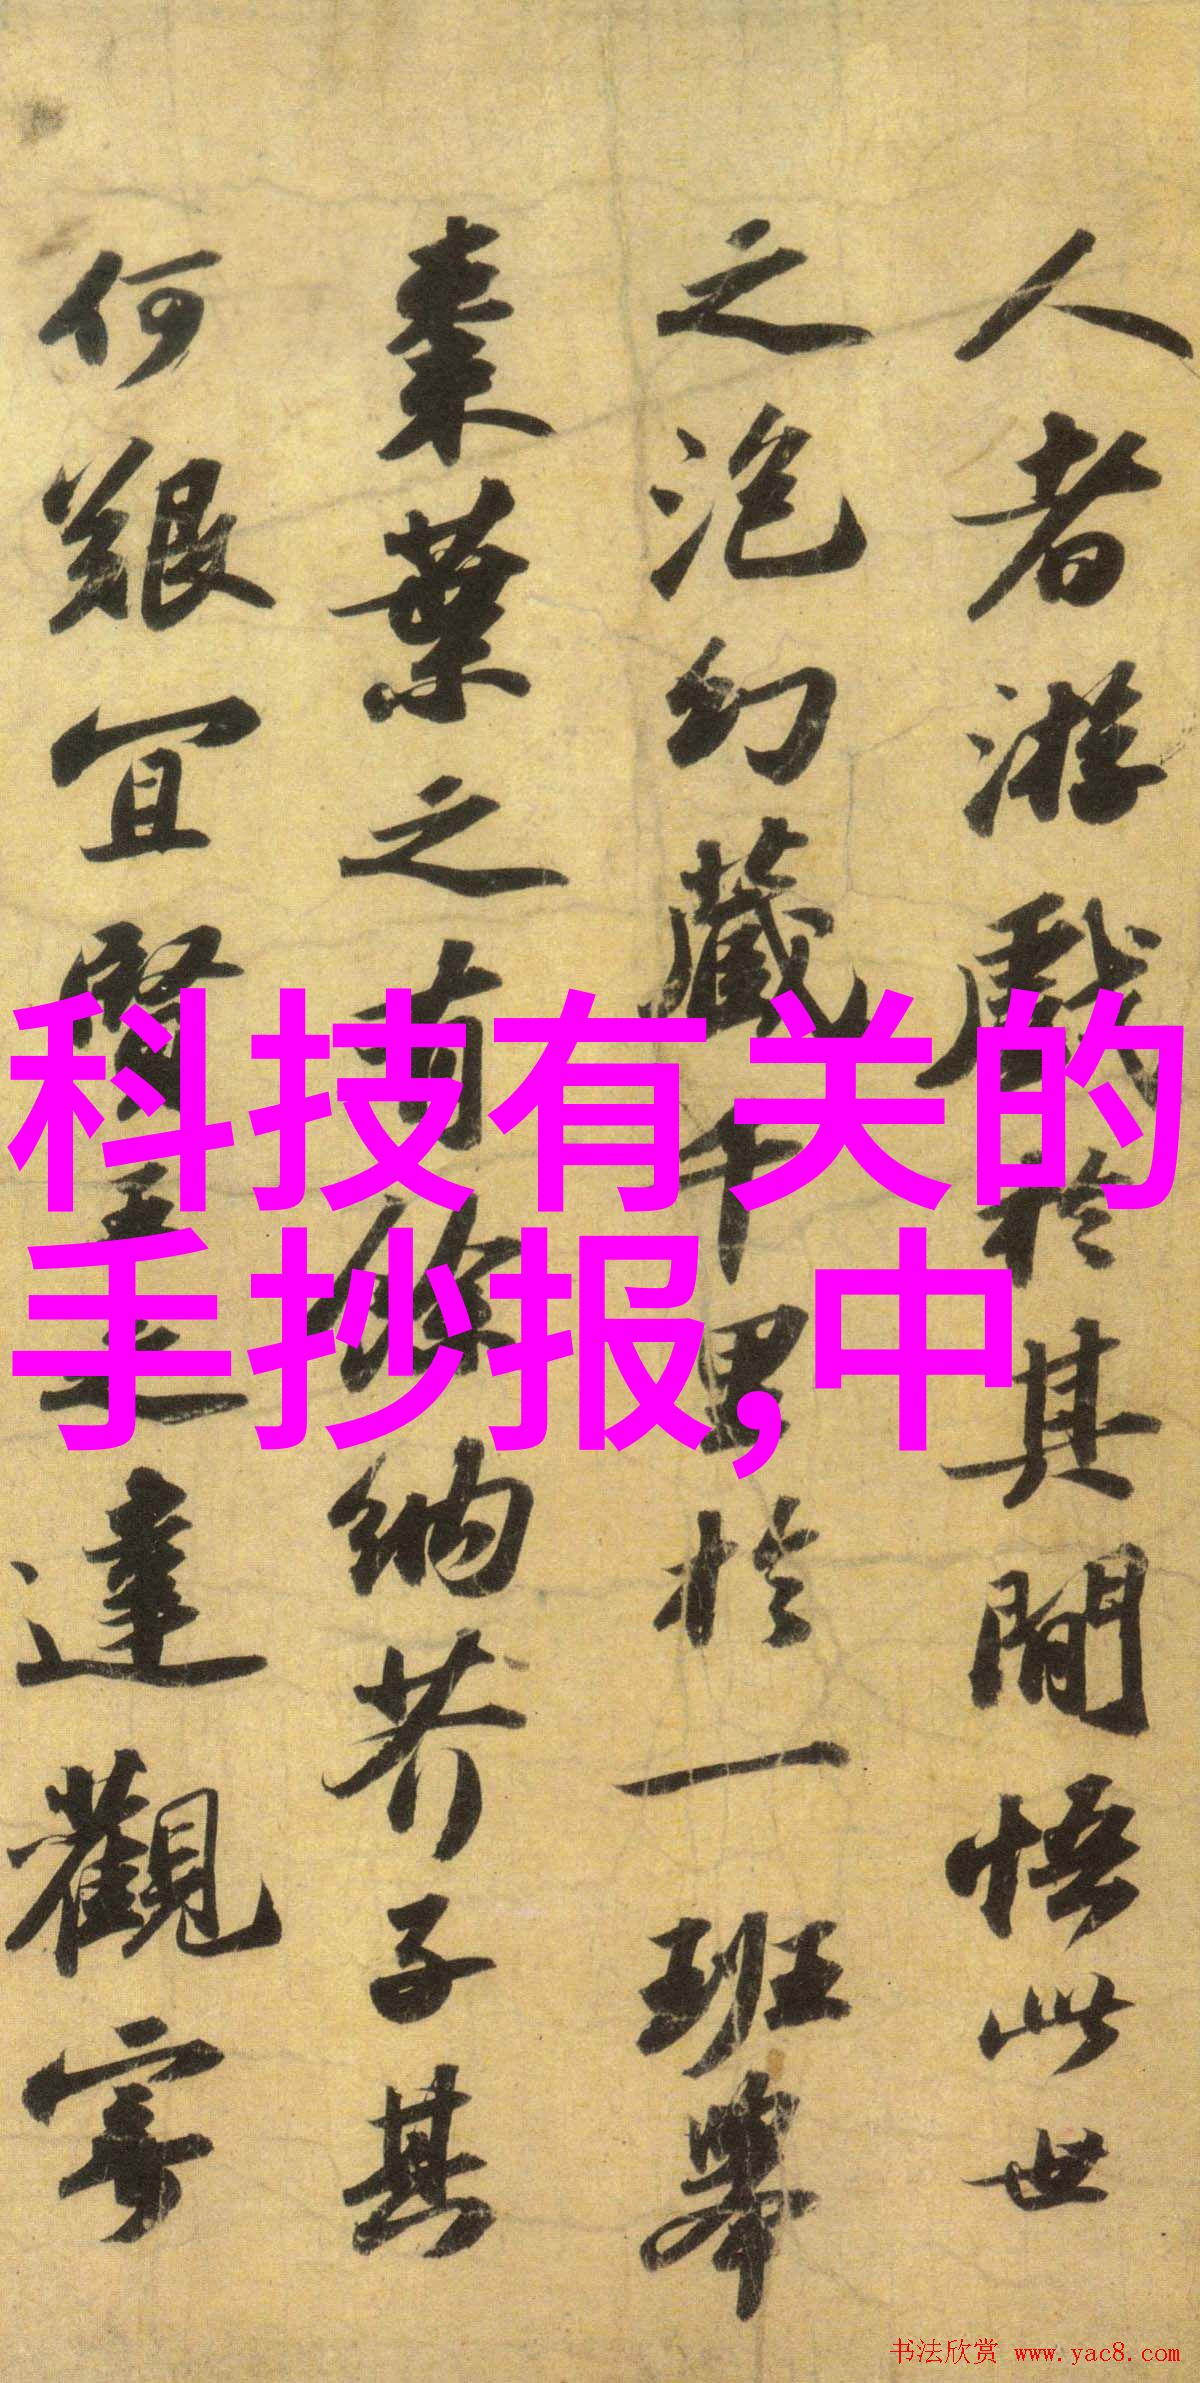 人者游戲於其間悟此世
之泡幻藏千里於一班舉
棗葉之有餘納芥子其
何艱宜賢王之達觀寄
科技有关的
手抄报,中
书法欣赏 www.yac8.com